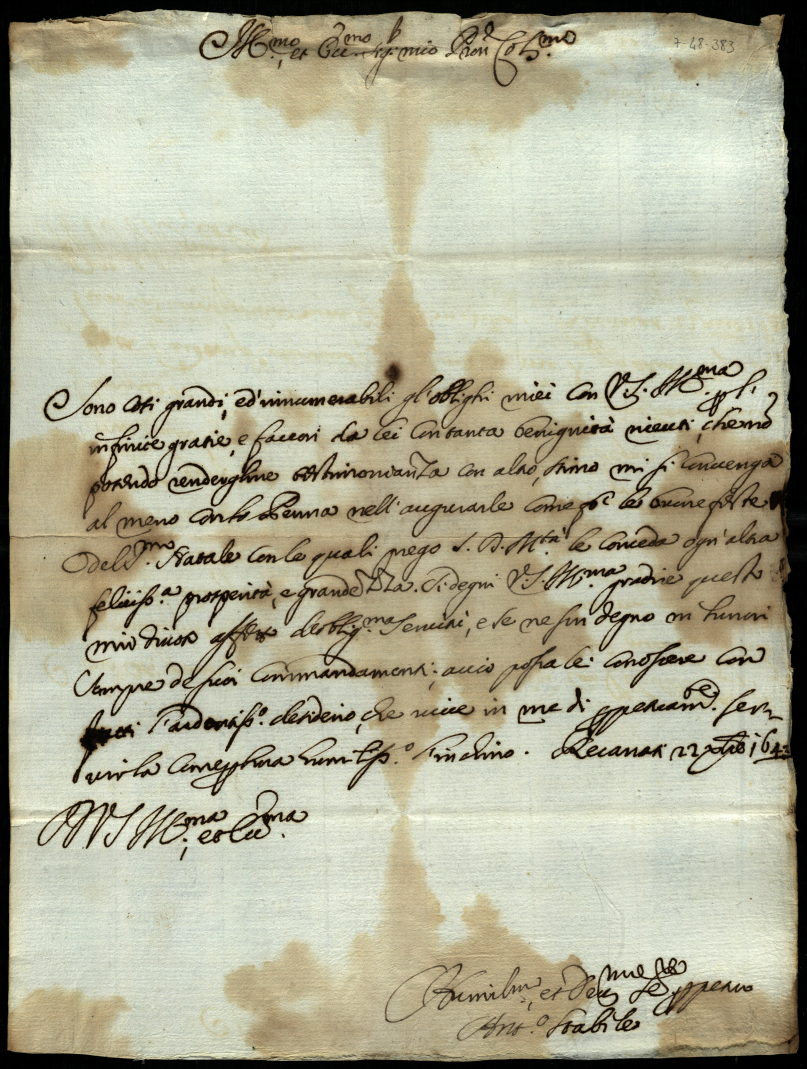 Ill.mo, et Ecc.mo Sig.r mio Pron Col.mo
7-48-383
Sono così grandi, ed'innumerabili gl'oblighi miei con V.S. Ill.ma p l'
infinite gratie, e favori da lei con tanta benignità riceuti, che nõ
potendo renderglene testimonianza con altro, stimo mi si convenga
al meno con la Penna nell'augurarle come fò le buone feste
del S.mo Natale con le quali prego S. D. M.tà le conceda ogn'altra
feliciss.a prosperità, e grandezza. Si degni V.S. Ill.ma gradire questo
mio divoto affetto del oblig.ma servitù, e se ne son degno m'honori
sempre de suoi commandamenti, acciò possa lei conoscere con
l'ardentiss.o desiderio, che vive in me di perpetuam.te ser=
virla come p hora humiliss.o l'inchino. Recanati 22 Xbre 164
D V S Ill.ma, et Ecc.ma
Humiliss, et Dev.mo Se perpetuo
Ant.o Stabile